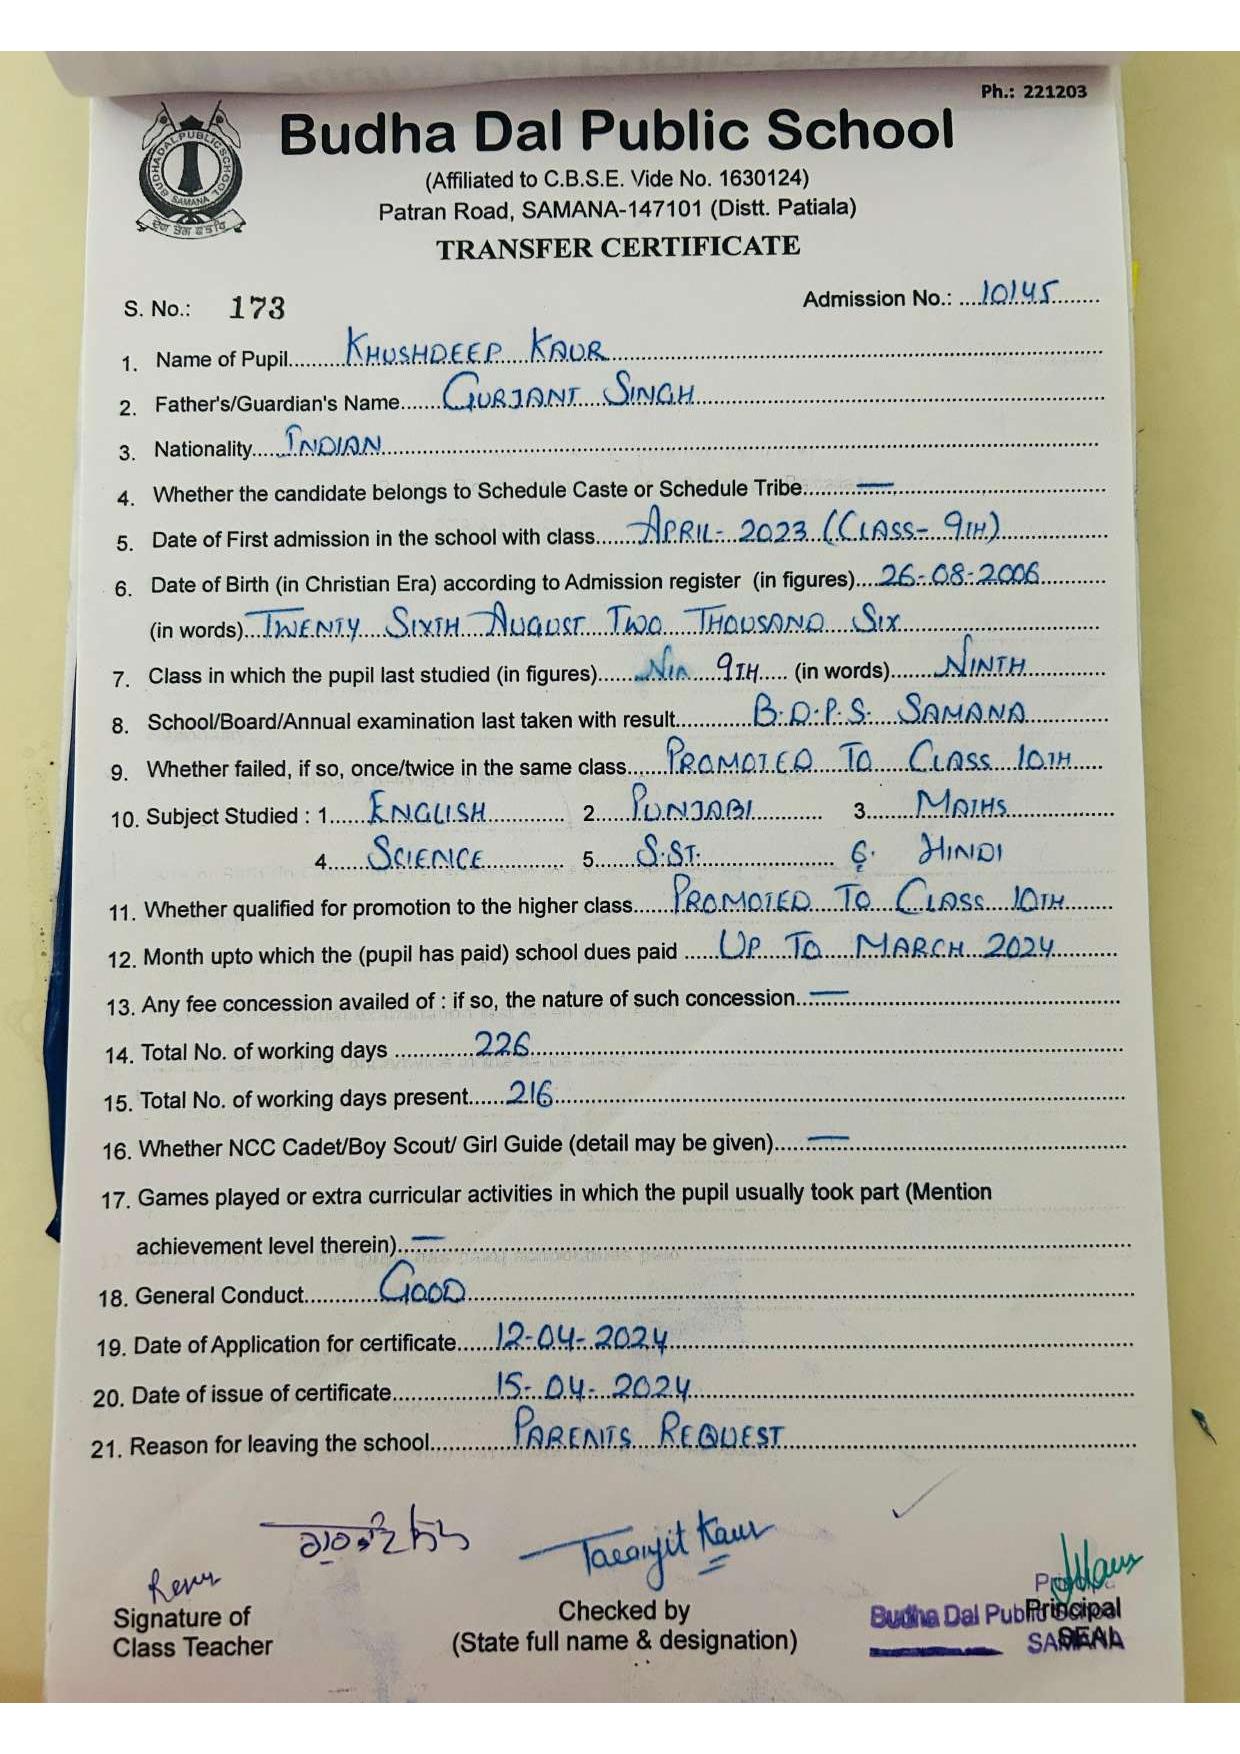 Ph.: 221203
BUDHA DAL PUBLIC SCHOOL
SAMANA
Budha Dal Public School
(Affiliated to C.B.S.E. Vide No. 1630124)
Patran Road, SAMANA-147101 (Distt. Patiala)
TRANSFER CERTIFICATE
S. No.: 173 Admission No.: ....10145........
1. Name of Pupil..........KHUSHDEEP KAUR..........
2. Father's/Guardian's Name.......GURJANT SINGH..........
3. Nationality......INDIAN..........
4. Whether the candidate belongs to Schedule Caste or Schedule Tribe.........—..........
5. Date of First admission in the school with class.......APRIL- 2023 (CLASS- 9TH)..........
6. Date of Birth (in Christian Era) according to Admission register (in figures)....26-08-2006..........
(in words)..TWENTY SIXTH AUGUST TWO THOUSAND SIX..........
7. Class in which the pupil last studied (in figures).......Nin 9TH..... (in words).......NINTH..........
8. School/Board/Annual examination last taken with result............B.D.P.S. SAMANA..........
9. Whether failed, if so, once/twice in the same class......PROMOTED TO CLASS 10TH.....
10. Subject Studied : 1......ENGLISH............ 2......PUNJABI............ 3........MATHS..........
4.....SCIENCE............ 5.......S.ST..................... 6. HINDI
11. Whether qualified for promotion to the higher class......PROMOTED TO CLASS 10TH........
12. Month upto which the (pupil has paid) school dues paid ......UP TO MARCH 2024..........
13. Any fee concession availed of : if so, the nature of such concession..—..........
14. Total No. of working days .............226..........
15. Total No. of working days present......216..........
16. Whether NCC Cadet/Boy Scout/ Girl Guide (detail may be given).....—..........
17. Games played or extra curricular activities in which the pupil usually took part (Mention
achievement level therein)..—..........
18. General Conduct............GOOD..........
19. Date of Application for certificate......12-04-2024..........
20. Date of issue of certificate................15-04-2024..........
21. Reason for leaving the school.............PARENTS REQUEST..........
Taranjit Kaur
Signature of Checked by Principal
Class Teacher (State full name & designation) SEAL
Budha Dal Public
SAMANA